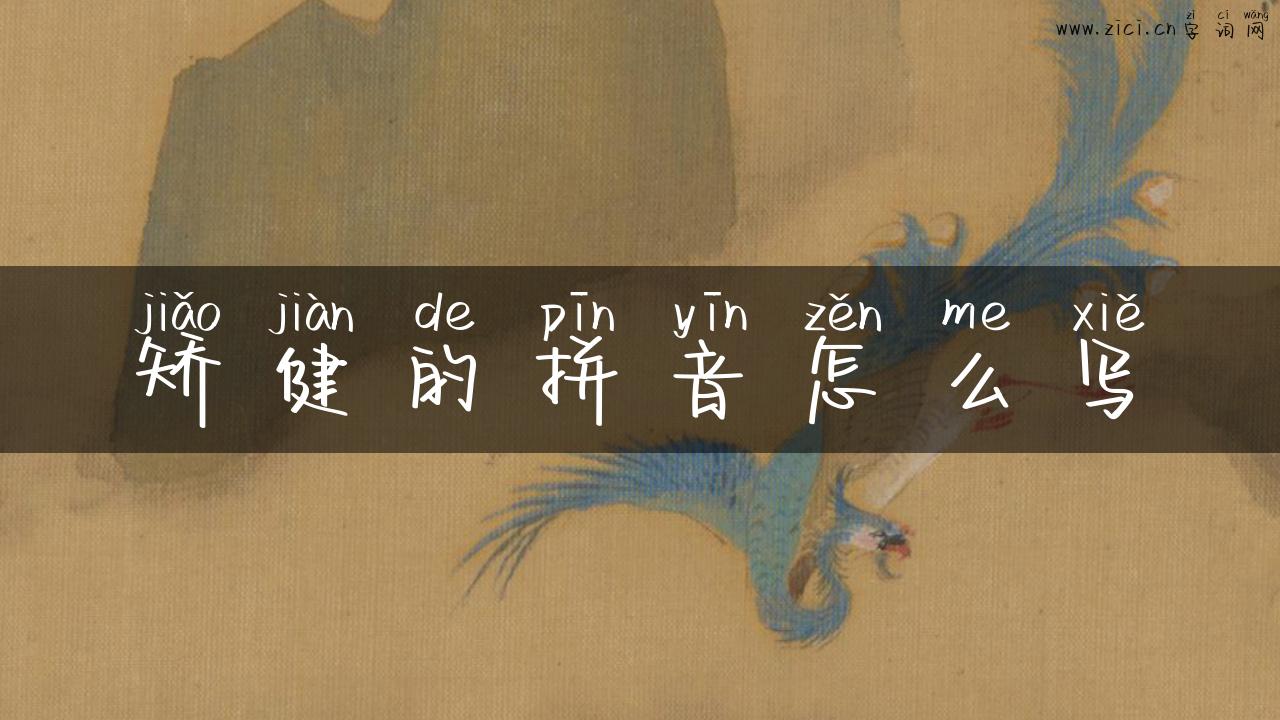 zì cí wǎng
www.zici.cn 字词网
jiǎo jiàn de pīn yīn zěn me xiě
矫健的拼音怎么写